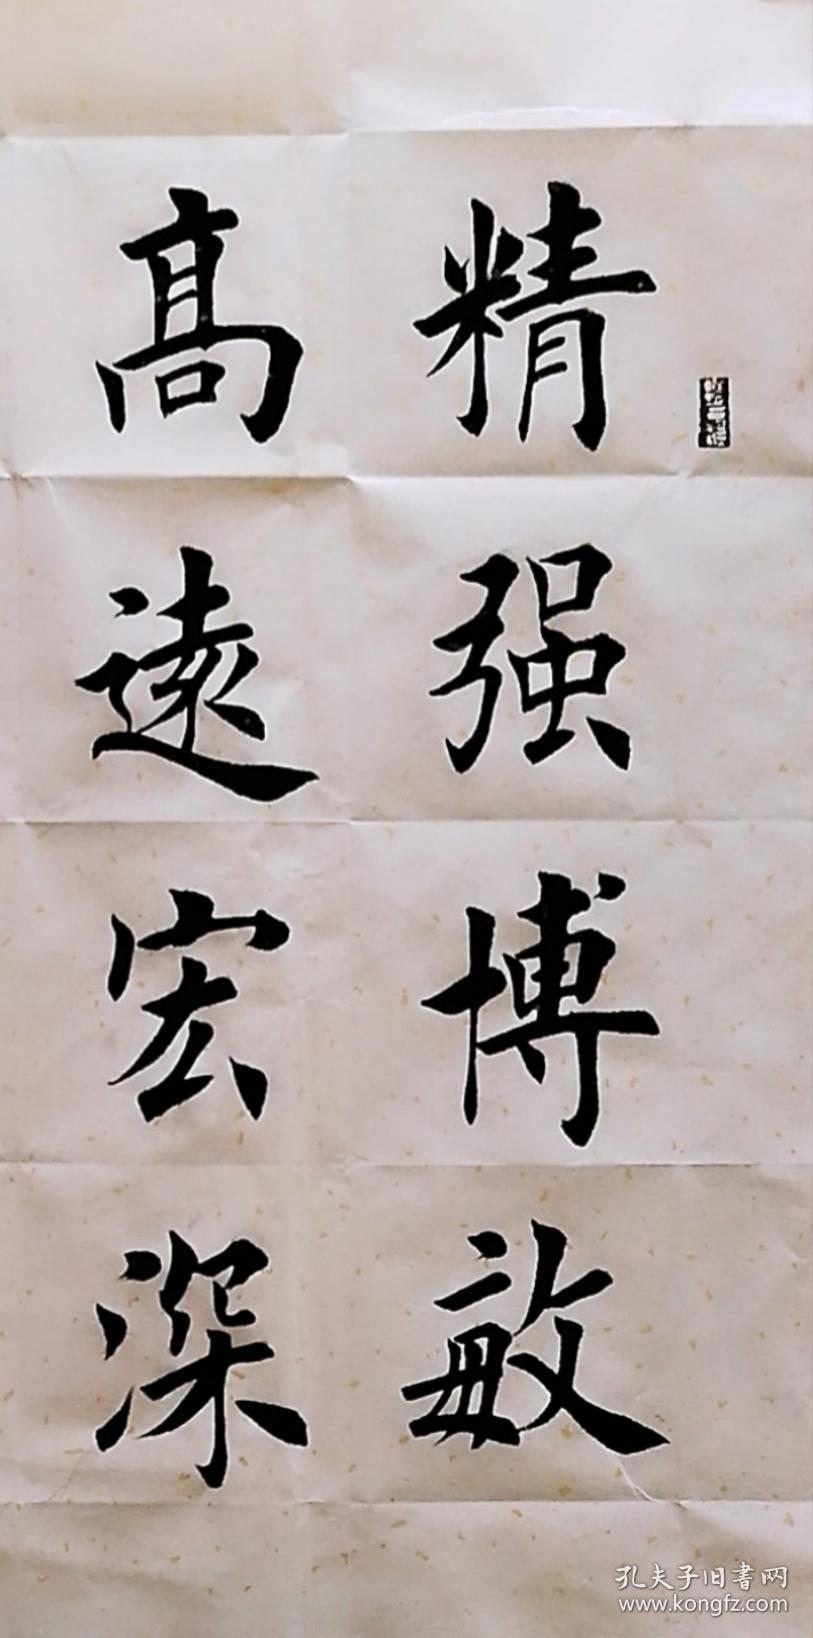 精强博敏
髙遠宏深
孔夫子旧書网
www.kongfz.com